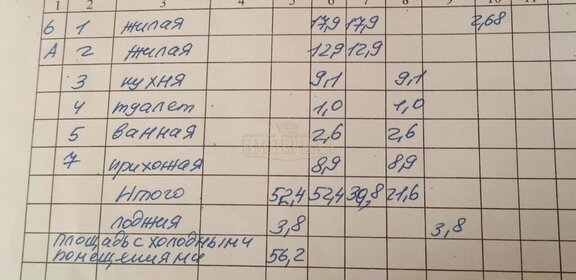 1 2 3 4 5 6 7 8 9 10 11
6 1 жилая 17,9 17,9 2,68
А 2 жилая 12,9 12,9
3 кухня 9,1 9,1
4 туалет 1,0 1,0
5 ванная 2,6 2,6
7 прихожая 8,9 8,9
Итого 52,4 52,4 30,8 21,6
лоджия 3,8 3,8
площадь с холодными
помещениями 56,2